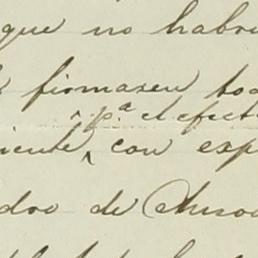 que no habri
firmasen to
p.ª el efect
iente con exp
dro de Anso